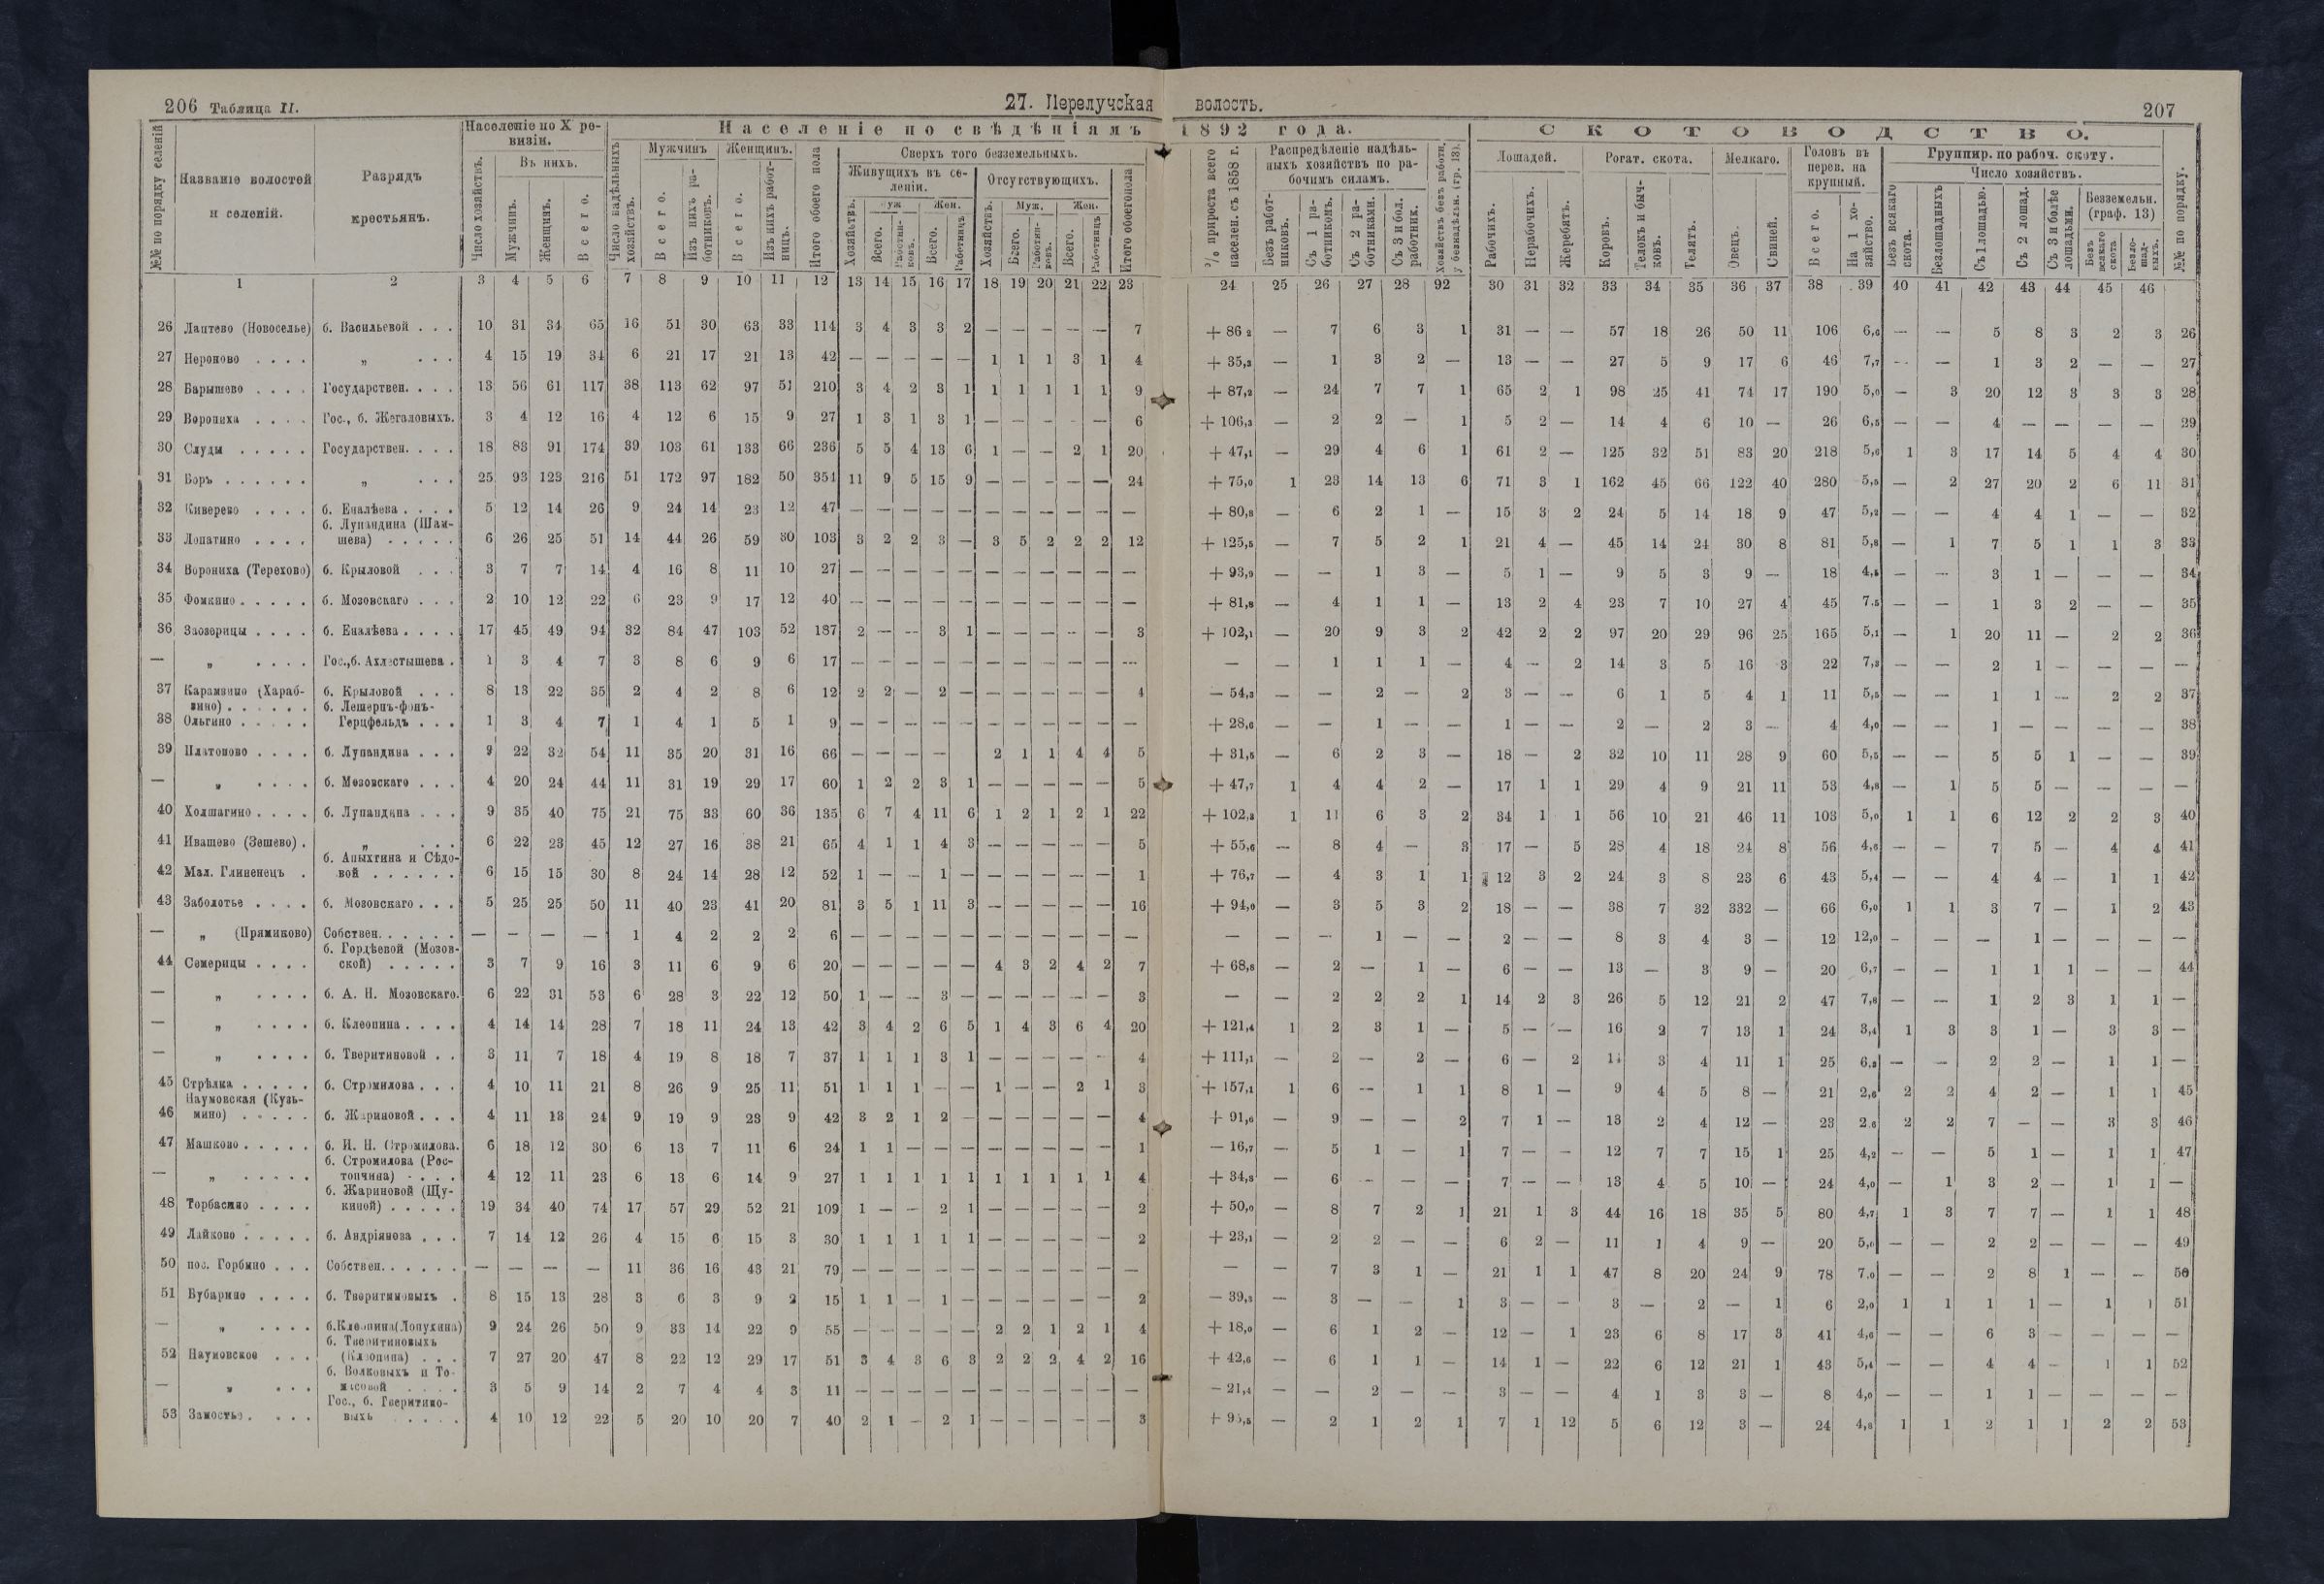 206 Таблица II.
27. Перелучская волость.
207
№№ по порядку селеній
Названіе волостей и селеній.
Разрядъ крестьянъ.
Населеніе по X ревизіи.
Число хозяйствъ.
Въ нихъ.
Мужчинъ.
Женщинъ.
Всего.
Населеніе по свѣдѣніямъ 1892 года.
Число надѣльныхъ хозяйствъ.
Мужчинъ
Всего.
Изъ нихъ работниковъ.
Женщинъ.
Всего.
Изъ нихъ работницъ.
Итого обоего пола
Сверхъ того безземельныхъ.
Живущихъ въ селеніи.
Отсутствующихъ.
Итого обоего пола
% прироста всего населен. съ 1858 г.
Распредѣленіе надѣльныхъ хозяйствъ по рабочимъ силамъ.
Безъ работниковъ.
Съ 1 работникомъ.
Съ 2 работниками.
Съ 3 и бол. работник.
СКОТОВОДСТВО.
Лошадей.
Рабочихъ.
Нерабочихъ.
Жеребятъ.
Рогат. скота.
Коровъ.
Телокъ и бычковъ.
Телятъ.
Мелкаго.
Овецъ.
Свиней.
Головъ въ перев. на крупный.
Всего.
На 1 хозяйство.
Группир. по рабоч. скоту.
Число хозяйствъ.
Безъ всякаго скота.
Безлошадныхъ
Съ 1 лошадью.
Съ 2 лошад.
Съ 3 и болѣе лошадьми.
Безземельн. (граф. 13)
Безъ всякаго скота
Безлошадныхъ.
№№ по порядку.
1 2 3 4 5 6 7 8 9 10 11 12 13 14 15 16 17 18 19 20 21 22 23 24 25 26 27 28 92 30 31 32 33 34 35 36 37 38 39 40 41 42 43 44 45 46
26 Лаптево (Новоселье) б. Васильевой . . . 10 31 34 65 16 51 30 63 33 114 3 4 3 3 2 — — — — — 7 + 86,2 — 7 6 3 1 31 — — 57 18 26 50 11 106 6,6 — — 5 8 3 2 3 26
27 Нероново . . . . „ . . . 4 15 19 34 6 21 17 21 13 42 — — — — — 1 1 1 3 1 4 + 35,3 — 1 3 2 — 13 — — 27 5 9 17 6 46 7,7 — — 1 3 2 — — 27
28 Барышево . . . . Государствен. . . . 13 56 61 117 38 113 62 97 51 210 3 4 2 3 1 1 1 1 1 1 9 + 87,2 — 24 7 7 1 65 2 1 98 25 41 74 17 190 5,0 — 3 20 12 3 3 3 28
29 Ворониха . . . . Гос., б. Жегаловыхъ. 3 4 12 16 4 12 6 15 9 27 1 3 1 3 1 — — — — — 6 + 106,3 — 2 2 — 1 5 2 — 14 4 6 10 — 26 6,5 — — 4 — — — — 29
30 Слуды . . . . . Государствен. . . . 18 83 91 174 39 103 61 133 66 236 5 5 4 13 6 1 — — 2 1 20 + 47,1 — 29 4 6 1 61 2 — 125 32 51 83 20 218 5,6 1 3 17 14 5 4 4 30
31 Боръ . . . . . . „ . . . 25 93 123 216 51 172 97 182 50 354 11 9 5 15 9 — — — — — 24 + 75,0 1 23 14 13 6 71 3 1 162 45 66 122 40 280 5,5 — 2 27 20 2 6 11 31
32 Киверево . . . . б. Еналѣева . . . . 5 12 14 26 9 24 14 23 12 47 — — — — — — — — — — — + 80,8 — 6 2 1 — 15 3 2 24 5 14 18 9 47 5,2 — — 4 4 1 — — 32
33 Лопатино . . . . б. Лупандина (Шамшева) . . . . . 6 26 25 51 14 44 26 59 30 103 3 2 2 3 — 3 5 2 2 2 12 + 125,5 — 7 5 2 1 21 4 — 45 14 24 30 8 81 5,8 — 1 7 5 1 1 3 33
34 Ворониха (Терехово) б. Крыловой . . . 3 7 7 14 4 16 8 11 10 27 — — — — — — — — — — — + 93,9 — — 1 3 — 5 1 — 9 5 3 9 — 18 4,5 — — 3 1 — — — 34
35 Фомкино . . . . . б. Мозовскаго . . . 2 10 12 22 6 23 9 17 12 40 — — — — — — — — — — — + 81,8 — 4 1 1 — 13 2 4 23 7 10 27 4 45 7,5 — — 1 3 2 — — 35
36 Заозерицы . . . . б. Еналѣева . . . . 17 45 49 94 32 84 47 103 52 187 2 — — 3 1 — — — — — 3 + 102,1 — 20 9 3 2 42 2 2 97 20 29 96 25 165 5,1 — 1 20 11 — 2 2 36
— „ . . . . Гос., б. Ахлестышева . 1 3 4 7 3 8 6 9 6 17 — — — — — — — — — — — — — 1 1 1 — 4 — 2 14 3 5 16 3 22 7,3 — — 2 1 — — — —
37 Карамзино (Харабзино) . . . . . . б. Крыловой . . . 8 13 22 35 2 4 2 8 6 12 2 2 — 2 — — — — — — 4 — 54,3 — — 2 — 2 3 — — 6 1 5 4 1 11 5,5 — — 1 1 — 2 2 37
38 Ольгино . . . . . б. Лешернъ-фонъ-Герцфельдъ . . . 1 3 4 7 1 4 1 5 1 9 — — — — — — — — — — — + 28,6 — — 1 — — 1 — — 2 — 2 3 — 4 4,0 — — 1 — — — — 38
39 Платоново . . . . б. Лупандина . . . 9 22 32 54 11 35 20 31 16 66 — — — — 2 1 1 4 4 5 + 31,5 — 6 2 3 — 18 — 2 32 10 11 28 9 60 5,5 — — 5 5 1 — — 39
— „ . . . . б. Мозовскаго . . . 4 20 24 44 11 31 19 29 17 60 1 2 2 3 1 — — — — — 5 + 47,7 1 4 4 2 — 17 1 1 29 4 9 21 11 53 4,8 — 1 5 5 — — — —
40 Холшагино . . . . б. Лупандина . . . 9 35 40 75 21 75 33 60 36 135 6 7 4 11 6 1 2 1 2 1 22 + 102,3 1 11 6 3 2 34 1 1 56 10 21 46 11 103 5,0 1 1 6 12 2 2 3 40
41 Ивашево (Зешево) . „ . . . 6 22 23 45 12 27 16 38 21 65 4 1 1 4 3 — — — — — 5 + 55,6 — 8 4 — 3 17 — 5 28 4 18 24 8 56 4,6 — — 7 5 — 4 4 41
42 Мал. Глиненецъ . б. Апыхтина и Сѣдовой . . . . . . 6 15 15 30 8 24 14 28 12 52 1 — — 1 — — — — — — 1 + 76,7 — 4 3 1 1 12 3 2 24 3 8 23 6 43 5,4 — — 4 4 — 1 1 42
43 Заболотье . . . . б. Мозовскаго . . . 5 25 25 50 11 40 23 41 20 81 3 5 1 11 3 — — — — — 16 + 94,0 — 3 5 3 2 18 — — 38 7 32 332 — 66 6,0 1 1 3 7 — 1 2 43
— „ (Прямиково) Собствен. . . . . . — — — — 1 4 2 2 2 6 — — — — — — — — — — — — — — 1 — — 2 — — 8 3 4 3 — 12 12,0 — — — 1 — — — —
44 Семерицы . . . . б. Гордѣевой (Мозовской) . . . . . 3 7 9 16 3 11 6 9 6 20 — — — — — 4 3 2 4 2 7 + 68,8 — 2 — 1 — 6 — — 13 — 3 9 — 20 6,7 — — 1 1 1 — — 44
— „ . . . . б. А. Н. Мозовскаго. 6 22 31 53 6 28 3 22 12 50 1 — — 3 — — — — — — 3 — — 2 2 2 1 14 2 3 26 5 12 21 2 47 7,8 — — 1 2 3 1 1 —
— „ . . . . б. Клеопина . . . . 4 14 14 28 7 18 11 24 13 42 3 4 2 6 5 1 4 3 6 4 20 + 121,4 1 2 3 1 — 5 — — 16 2 7 13 1 24 3,4 1 3 3 1 — 3 3 —
— „ . . . . б. Тверитиновой . . 3 11 7 18 4 19 8 18 7 37 1 1 1 3 1 — — — — — 4 + 111,1 — 2 — 2 — 6 — 2 11 3 4 11 1 25 6,3 — — 2 2 — 1 1 —
45 Стрѣлка . . . . . б. Стромилова . . . 4 10 11 21 8 26 9 25 11 51 1 1 1 — — 1 — — 2 1 3 + 157,1 1 6 — 1 1 8 1 — 9 4 5 8 — 21 2,6 2 2 4 2 — 1 1 45
46 Наумовская (Кузьмино) . . . . . б. Жариновой . . . 4 11 13 24 9 19 9 23 9 42 3 2 1 2 — — — — — — 4 + 91,6 — 9 — — 2 7 1 — 13 2 4 12 — 23 2,6 2 2 7 — — 3 3 46
47 Машково . . . . . б. И. Н. Стромилова. 6 18 12 30 6 13 7 11 6 24 1 1 — — — — — — — — 1 — 16,7 — 5 1 — 1 7 — — 12 7 7 15 1 25 4,2 — — 5 1 — 1 1 47
— „ . . . . . б. Стромилова (Ростопчина) . . . . 4 12 11 23 6 13 6 14 9 27 1 1 1 1 1 1 1 1 1 1 4 + 34,8 — 6 — — — 7 — — 13 4 5 10 — 24 4,0 — 1 3 2 — 1 1 —
48 Торбасино . . . . б. Жариновой (Щукиной) . . . . . 19 34 40 74 17 57 29 52 21 109 1 — — 2 1 — — — — — 2 + 50,0 — 8 7 2 1 21 1 3 44 16 18 35 5 80 4,7 1 3 7 7 — 1 1 48
49 Лайково . . . . . б. Андріянова . . . 7 14 12 26 4 15 6 15 3 30 1 1 1 1 1 — — — — — 2 + 23,1 — 2 2 — — 6 2 — 11 1 4 9 — 20 5,0 — — 2 2 — — — 49
50 пос. Горбино . . . Собствен. . . . . . — — — — 11 36 16 43 21 79 — — — — — — — — — — — — — 7 3 1 — 21 1 1 47 8 20 24 9 78 7,0 — — 2 8 1 — — 50
51 Бубарино . . . . б. Тверитиновыхъ . 8 15 13 28 3 6 3 9 2 15 1 1 — 1 — — — — — — 2 — 39,3 — 3 — — 1 3 — — 3 — 2 — 1 6 2,0 1 1 1 1 — 1 1 51
— „ . . . . б. Клеопина (Лопухина) 9 24 26 50 9 33 14 22 9 55 — — — — — 2 2 1 2 1 4 + 18,0 — 6 1 2 — 12 — 1 23 6 8 17 3 41 4,6 — — 6 3 — — — —
52 Наумовское . . . б. Тверитиновыхъ (Клеопина) . . . 7 27 20 47 8 22 12 29 17 51 3 4 3 6 3 2 2 2 4 2 16 + 42,6 — 6 1 1 — 14 1 — 22 6 12 21 1 43 5,4 — — 4 4 — 1 1 52
— „ . . . б. Волковыхъ и Томасовой . . . . 3 5 9 14 2 7 4 4 3 11 — — — — — — — — — — — — 21,4 — — 2 — — 3 — — 4 1 3 3 — 8 4,0 — — 1 1 — — — —
53 Замостье . . . . Гос., б. Тверитиновыхъ . . . . 4 10 12 22 5 20 10 20 7 40 2 1 — 2 1 — — — — — 3 + 95,5 — 2 1 2 1 7 1 12 5 6 12 3 — 24 4,8 1 1 2 1 1 2 2 53